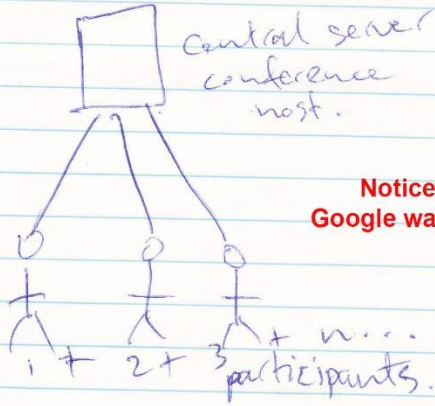 Central server
conference
host.
Notice
Google wa
1 + 2 + 3 + n...
participants.